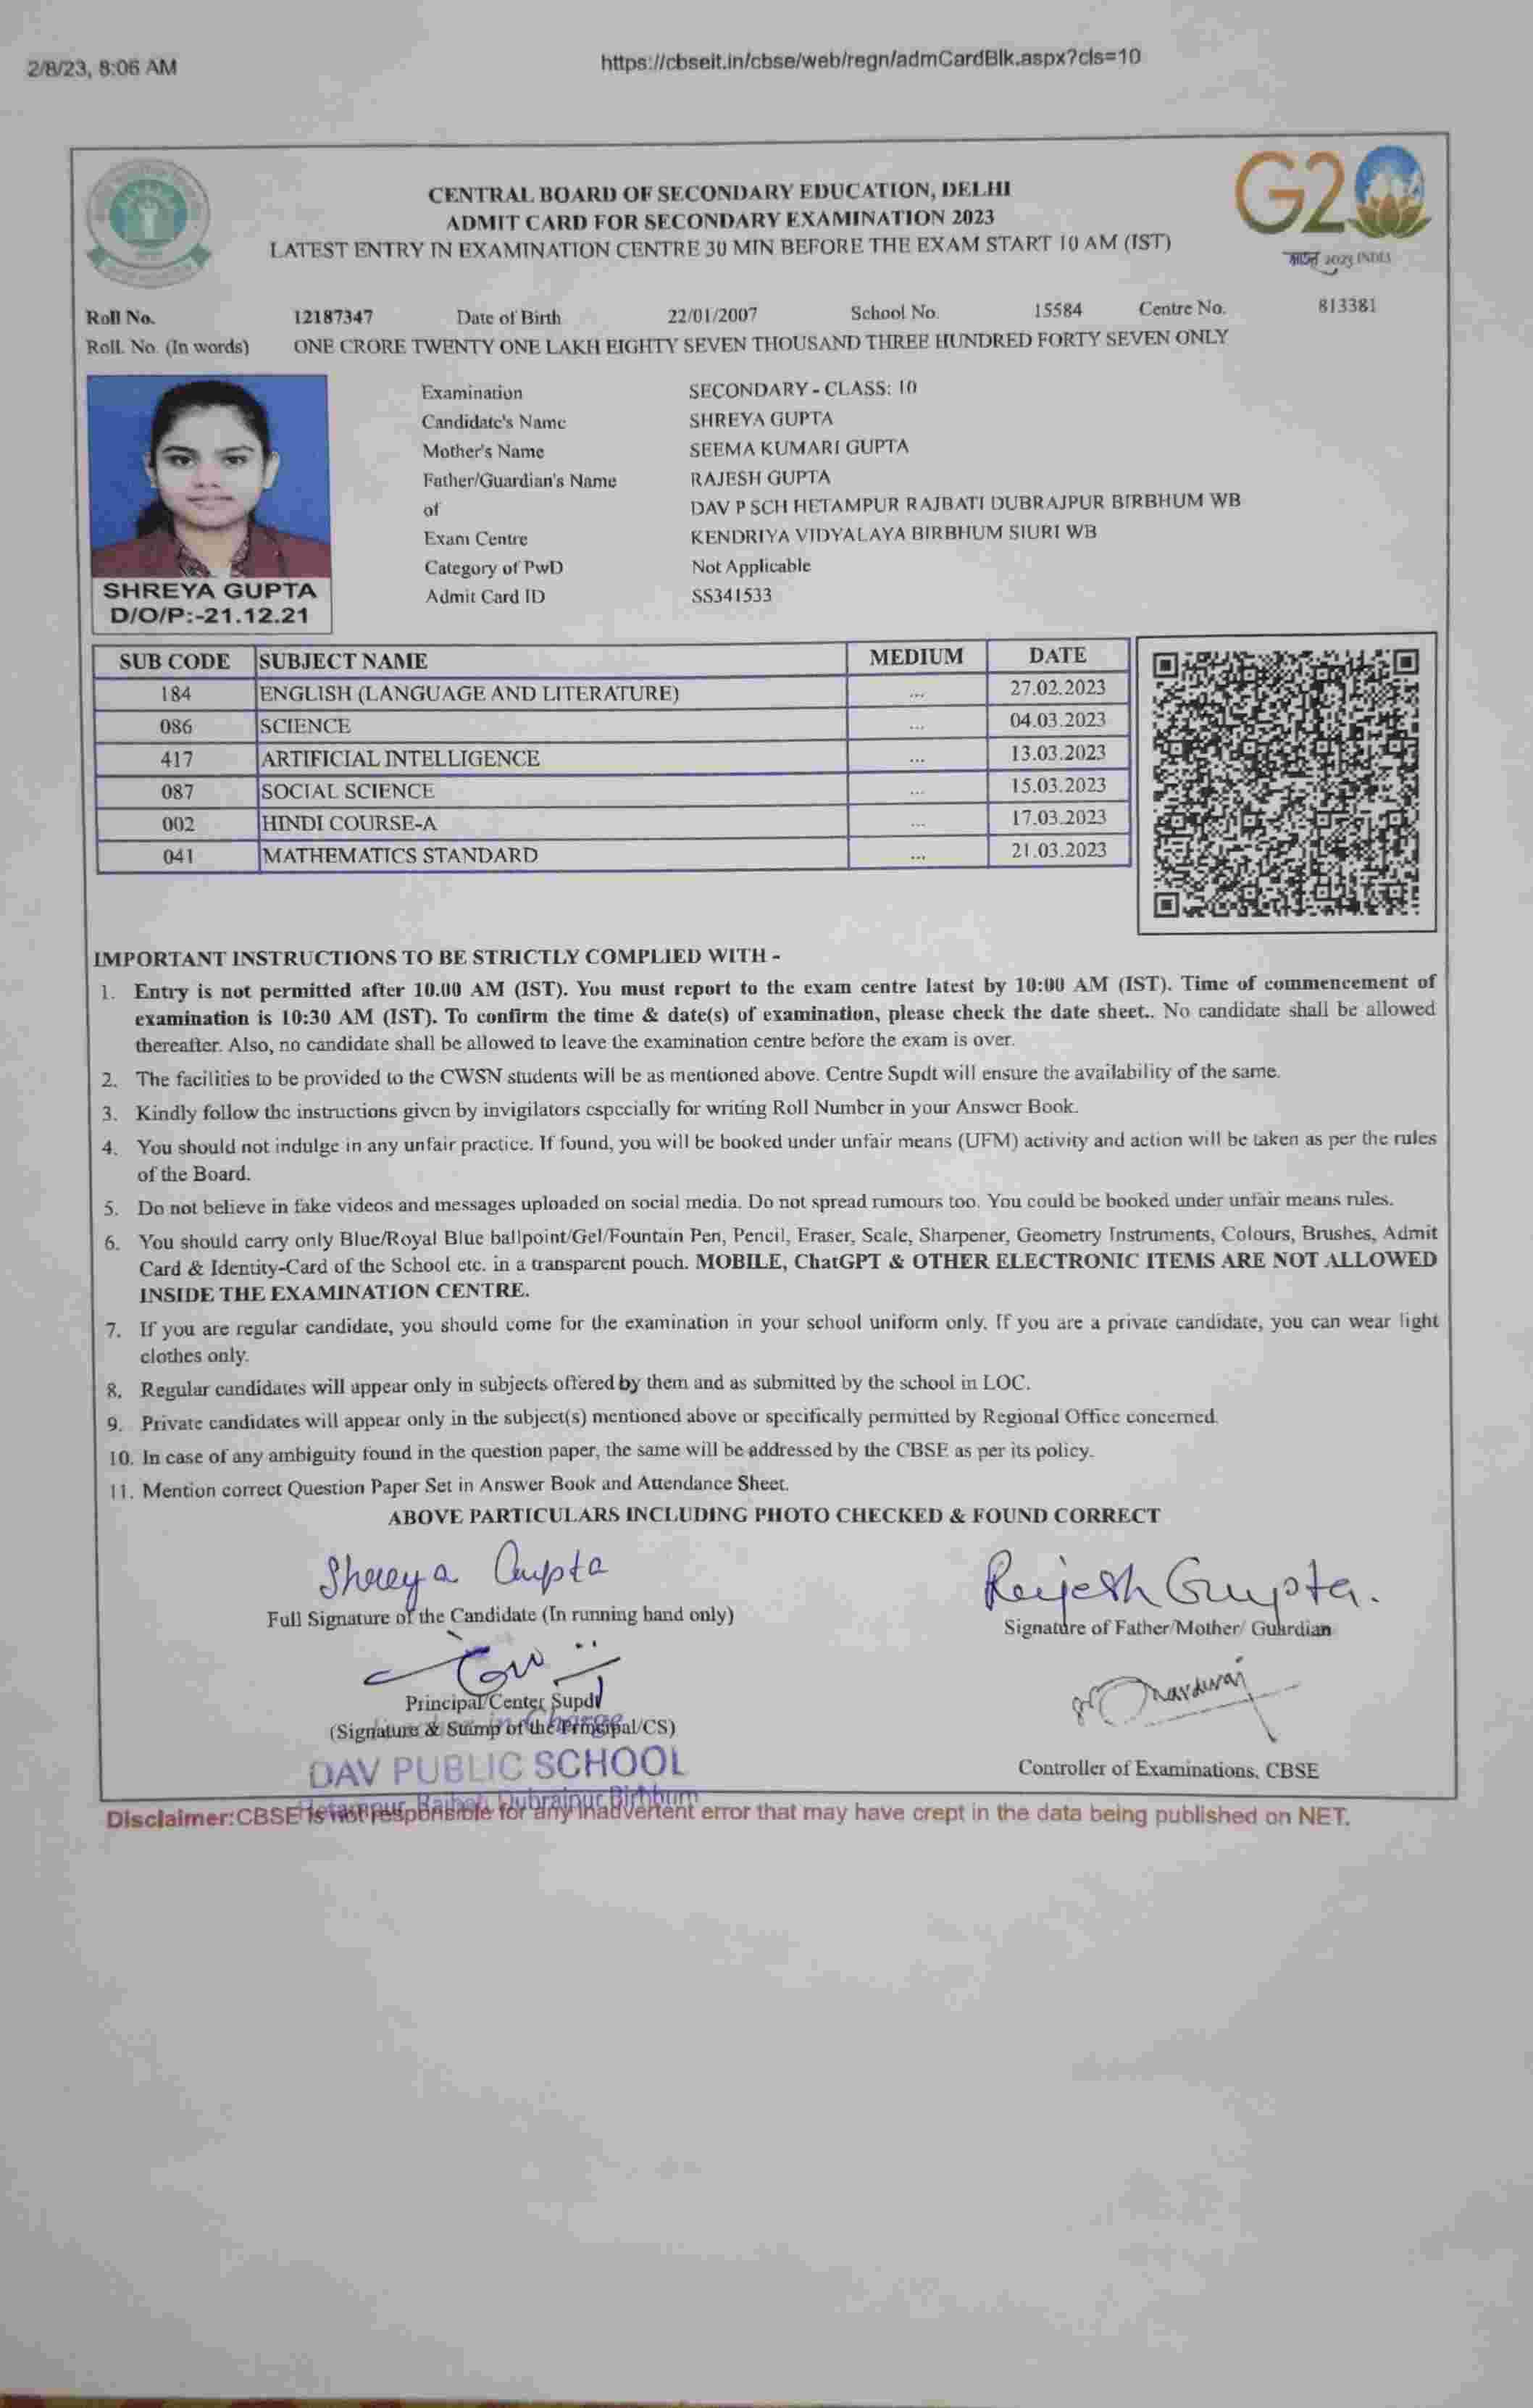 2/8/23, 8:06 AM
https://cbseit.in/cbse/web/regn/admCardBlk.aspx?cls=10
CENTRAL BOARD OF SECONDARY EDUCATION, DELHI
ADMIT CARD FOR SECONDARY EXAMINATION 2023
LATEST ENTRY IN EXAMINATION CENTRE 30 MIN BEFORE THE EXAM START 10 AM (IST)
G20
भारत 2023 INDIA
Roll No. 12187347 Date of Birth 22/01/2007 School No. 15584 Centre No. 813381
Roll. No. (In words) ONE CRORE TWENTY ONE LAKH EIGHTY SEVEN THOUSAND THREE HUNDRED FORTY SEVEN ONLY
Examination SECONDARY - CLASS: 10
Candidate's Name SHREYA GUPTA
Mother's Name SEEMA KUMARI GUPTA
Father/Guardian's Name RAJESH GUPTA
of DAV P SCH HETAMPUR RAJBATI DUBRAJPUR BIRBHUM WB
Exam Centre KENDRIYA VIDYALAYA BIRBHUM SIURI WB
Category of PwD Not Applicable
Admit Card ID SS341533
SHREYA GUPTA
D/O/P:-21.12.21
SUB CODE SUBJECT NAME MEDIUM DATE
184 ENGLISH (LANGUAGE AND LITERATURE) ... 27.02.2023
086 SCIENCE ... 04.03.2023
417 ARTIFICIAL INTELLIGENCE ... 13.03.2023
087 SOCIAL SCIENCE ... 15.03.2023
002 HINDI COURSE-A ... 17.03.2023
041 MATHEMATICS STANDARD ... 21.03.2023
IMPORTANT INSTRUCTIONS TO BE STRICTLY COMPLIED WITH -
1. Entry is not permitted after 10.00 AM (IST). You must report to the exam centre latest by 10:00 AM (IST). Time of commencement of
examination is 10:30 AM (IST). To confirm the time & date(s) of examination, please check the date sheet.. No candidate shall be allowed
thereafter. Also, no candidate shall be allowed to leave the examination centre before the exam is over.
2. The facilities to be provided to the CWSN students will be as mentioned above. Centre Supdt will ensure the availability of the same.
3. Kindly follow the instructions given by invigilators especially for writing Roll Number in your Answer Book.
4. You should not indulge in any unfair practice. If found, you will be booked under unfair means (UFM) activity and action will be taken as per the rules
of the Board.
5. Do not believe in fake videos and messages uploaded on social media. Do not spread rumours too. You could be booked under unfair means rules.
6. You should carry only Blue/Royal Blue ballpoint/Gel/Fountain Pen, Pencil, Eraser, Scale, Sharpener, Geometry Instruments, Colours, Brushes, Admit
Card & Identity-Card of the School etc. in a transparent pouch. MOBILE, ChatGPT & OTHER ELECTRONIC ITEMS ARE NOT ALLOWED
INSIDE THE EXAMINATION CENTRE.
7. If you are regular candidate, you should come for the examination in your school uniform only. If you are a private candidate, you can wear light
clothes only.
8. Regular candidates will appear only in subjects offered by them and as submitted by the school in LOC.
9. Private candidates will appear only in the subject(s) mentioned above or specifically permitted by Regional Office concerned.
10. In case of any ambiguity found in the question paper, the same will be addressed by the CBSE as per its policy.
11. Mention correct Question Paper Set in Answer Book and Attendance Sheet.
ABOVE PARTICULARS INCLUDING PHOTO CHECKED & FOUND CORRECT
Shreya Gupta
Rajesh Gupta.
Full Signature of the Candidate (In running hand only)
Signature of Father/Mother/ Guardian
Principal/Center Supdt
(Signature & Stamp of the Principal/CS)
DAV PUBLIC SCHOOL
Hetampur Rajbati Dubrajpur Birbhum
Controller of Examinations, CBSE
Disclaimer:CBSE is not responsible for any inadvertent error that may have crept in the data being published on NET.